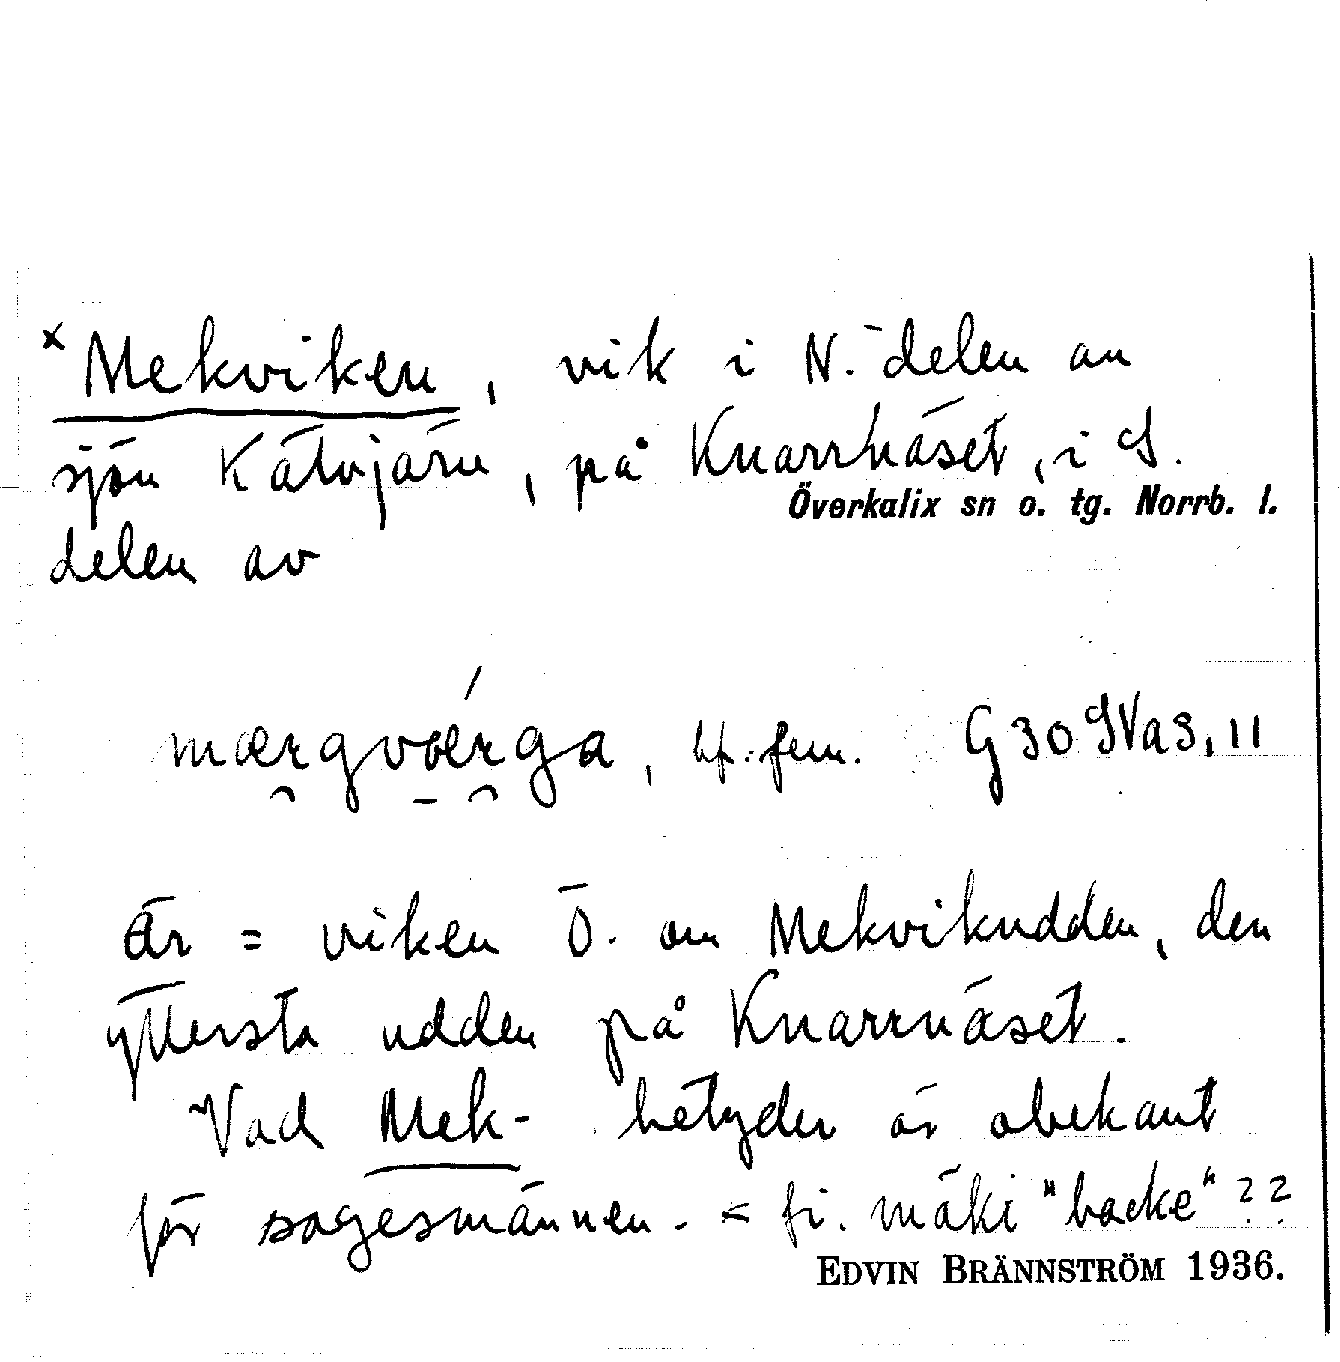 × Mekviken, vik i N. delen av
sjön Kätvjärv, på Knarrnäset, i S.
Överkalix sn o. tg. Norrb. l.
delen av
bf. fem. G 30
Är = viken Ö. om Mekvikudden, den
yttersta udden på Knarrnäset.
Vad Mek- betyder är obekant
för sagesmännen. < fi. mäki "backe" ??
EDVIN BRÄNNSTRÖM 1936.